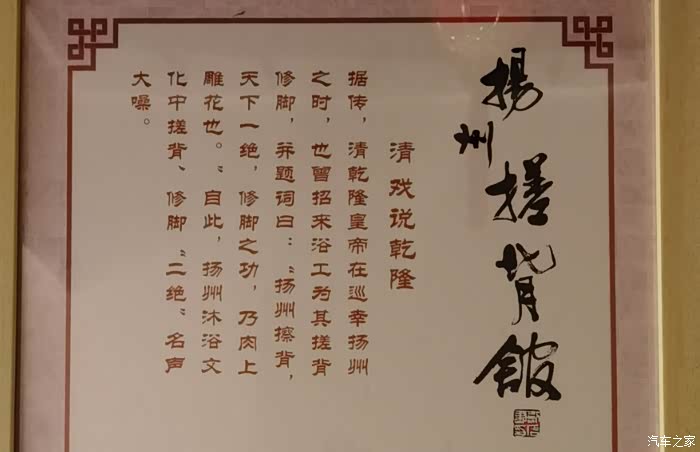 揚州搓背館
清戏说乾隆
据传，清乾隆皇帝在巡幸扬州
之时，也曾招来浴工为其搓背
修脚，并题词曰：“扬州擦背，
天下一绝，修脚之功，乃肉上
雕花也。”自此，扬州沐浴文
化中搓背、修脚“二绝”名声
大噪。
汽车之家